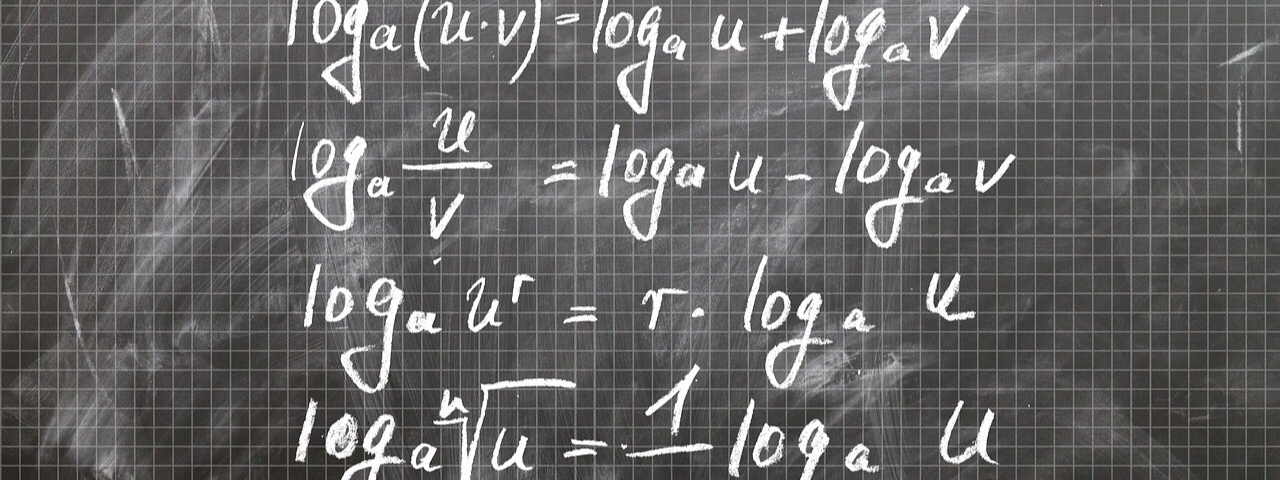 logₐ(u·v) = logₐ u + logₐ v
logₐ u/v = logₐ u - logₐ v
logₐ uʳ = r · logₐ u
logₐ ⁿ√u = 1/ logₐ u